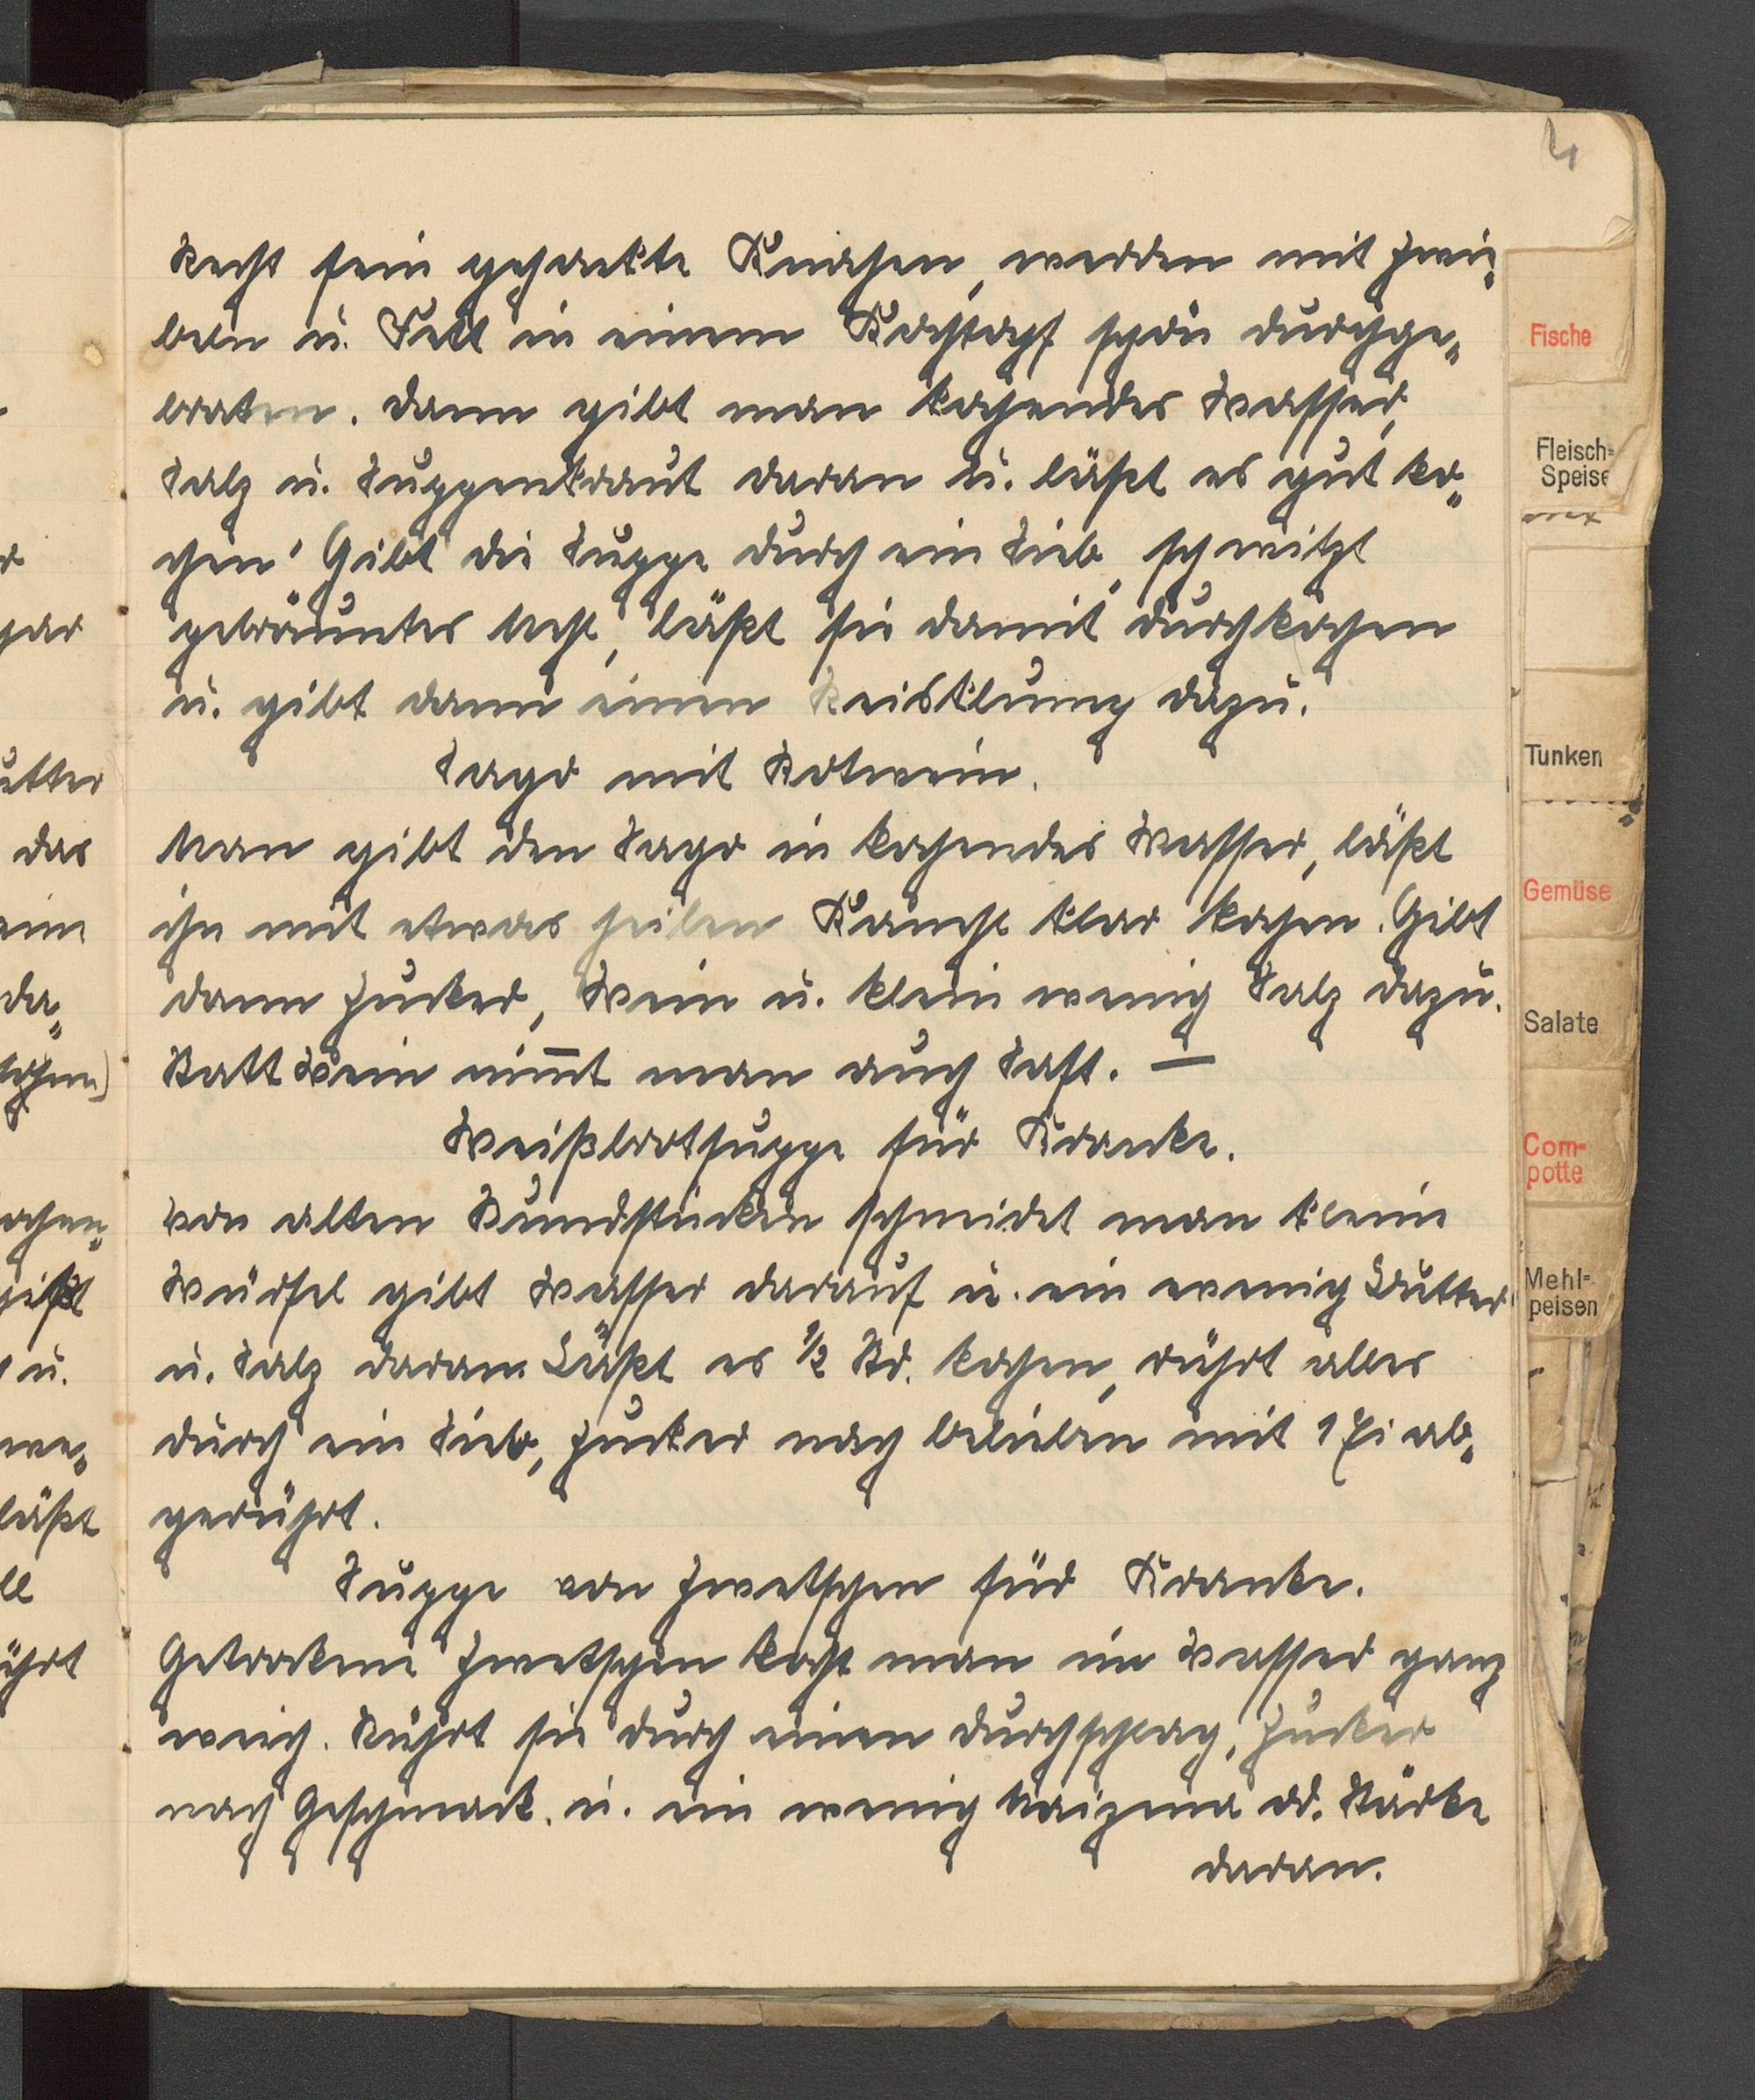 4
Recht fein gehackte Knochen, werden mit Zwie-
beln u. Fett in einem Kochtopf schön durchge-
braten. Dann gibt man kochendes Wasser,
Salz u. Suppenkraut daran u. läßt es gut ko-
chen. Gibt die Suppe durch ein Sieb, schwitzt
gebräuntes Mehl, läßt sie damit durchkochen
u. gibt dann einen Reisklump dazu.
Sago mit Rotwein.
Man gibt den Sago in kochendes Wasser, läßt
ihn mit etwas heilen Kaneel klar kochen. Gibt
dann Zucker, Wein u. klein wenig Salz dazu.
Statt Wein nim̅t man auch Saft. —
Weißbrotsuppe für Kranke.
Von alten Rundstücken schneidet man kleine
Würfel gibt Wasser darauf u. ein wenig Butter
u. Salz daran. Läßt es ½ Std. kochen, rührt alles
durch ein Sieb, Zucker nach belieben mit 1 Ei ab-
gerührt.
Suppe von Zwetschen für Kranke.
Getrockene Zwetschen kocht man im Wasser ganz
weich. Rührt sie durch einen Durchschlag, Zucker
nach Geschmack. u. ein wenig Maizena od. Stärke
daran.
Fische
Fleisch-
Speise
Tunken
Gemüse
Salate
Com-
potte
Mehl-
peisen